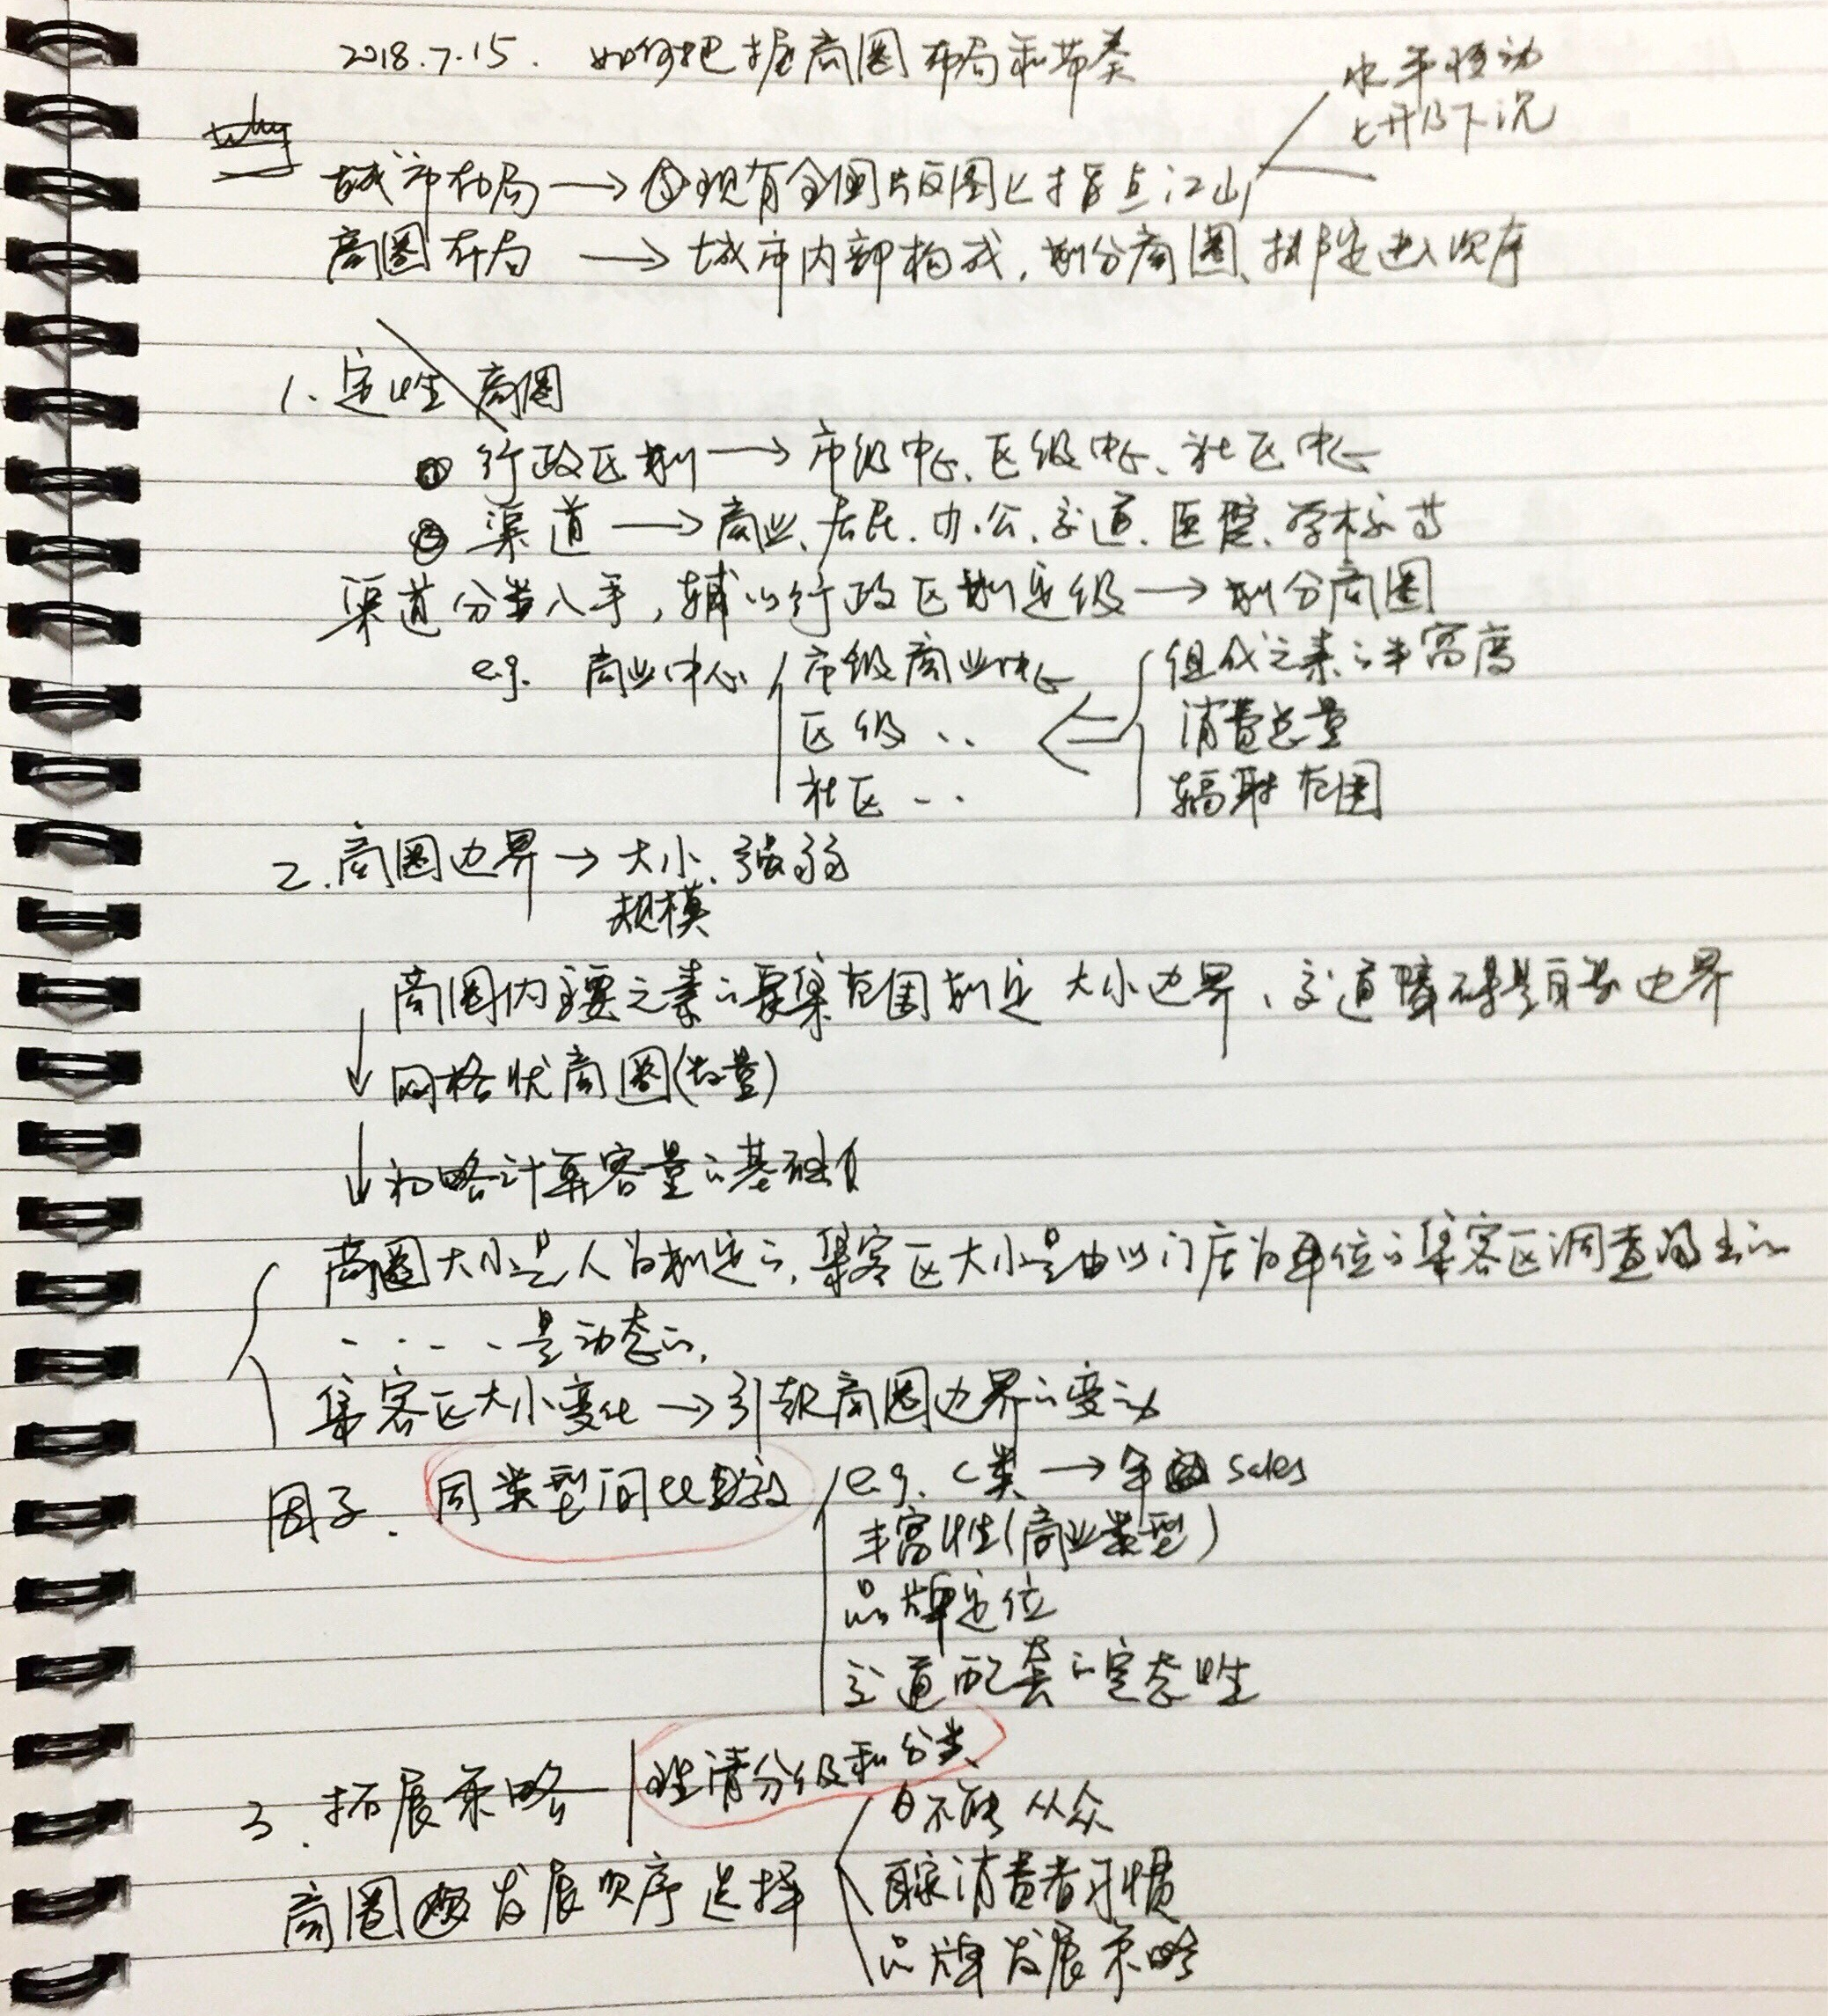 2018.7.15. 如何把握商圈布局和节奏
水平移动
上升及下沉
why
城市布局→现有全国版图上指点江山
商圈布局→城市内部构成,划分商圈、排定进入次序
1. 定性 商圈
① 行政区划→市级中心、区级中心、社区中心
② 渠道→商业、居民、办公、交通、医院、学校等
渠道分类入手,辅以行政区划定级→划分商圈
e.g. 商业中心 市级商业中心 组成元素的丰富度
区级‥ 消费总量
社区‥ 辐射范围
2. 商圈边界→大小、强弱
规模
商圈内主要元素的聚集范围划定大小边界、交通障碍是自然边界
↓网格状商圈(数量)
↓粗略计算容量的基础
商圈大小是人为划定的,集客区大小是由以门店为单位的集客区调查得出的
- - - - 是动态的,
集客区大小变化→引起商圈边界的变动
因子. 同类型间比较 e.g. C类→年 sales
丰富性(商业类型)
品牌定位
交通配套的完态性
3. 拓展策略 理清分级和分类
商圈 发展顺序选择 不能从众
消费者习惯
品牌发展策略